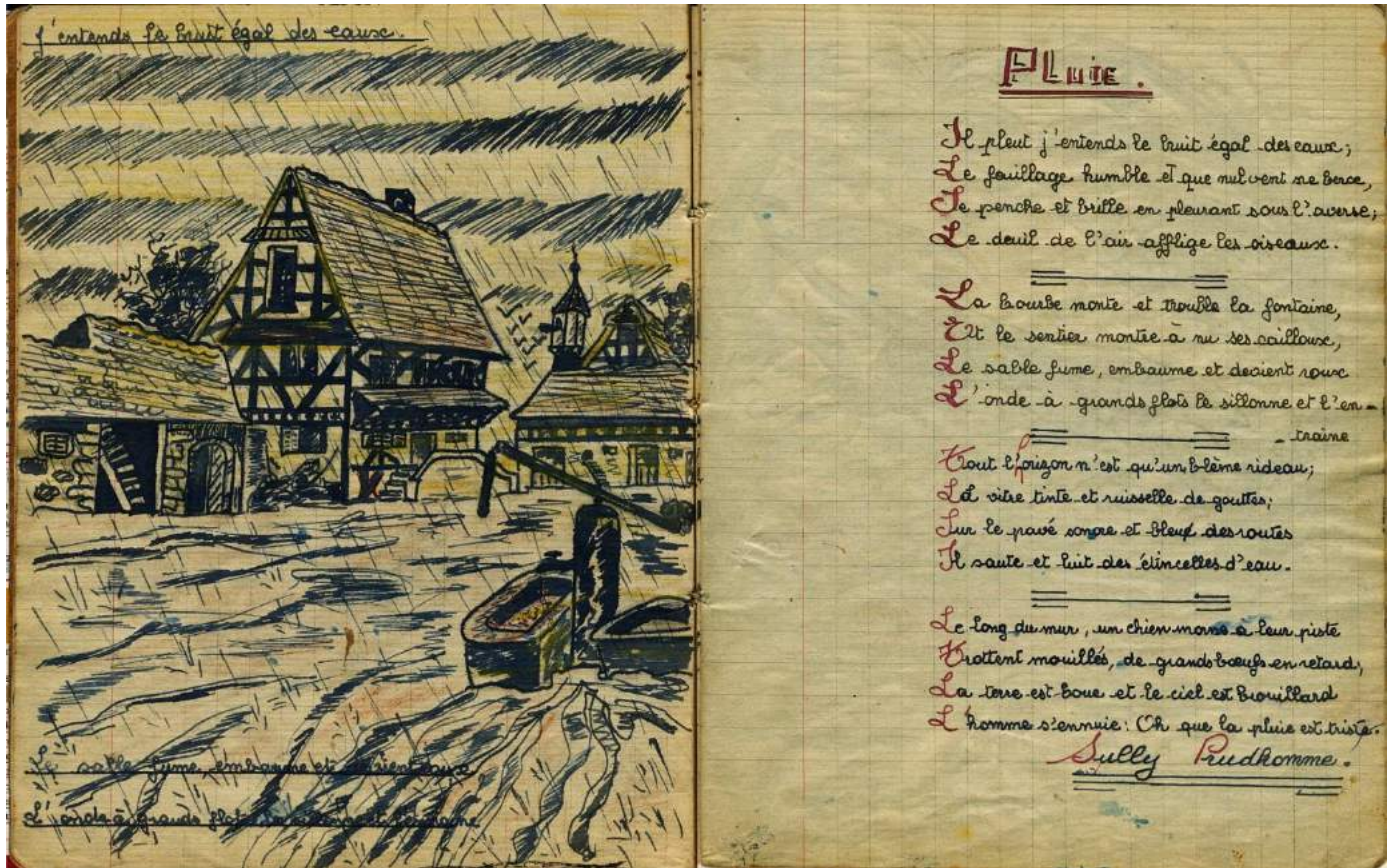 J'entends le bruit égal des eaux.
Le sable fume, embaume et devient roux
L'onde à grands flots le sillonne et l'entraine
PLUIE.
Il pleut j'entends le bruit égal des eaux;
Le feuillage humble et que nul vent ne berce,
Se penche et brille en pleurant sous l'averse;
Le deuil de l'air afflige les oiseaux.
La bourbe monte et trouble la fontaine,
Et le sentier montre à nu ses cailloux,
Le sable fume, embaume et devient roux
L'onde à grands flots le sillonne et l'en-
-traine
Tout l'horizon n'est qu'un blême rideau;
La vitre tinte et ruisselle de gouttes;
Sur le pavé sonore et bleu des routes
Il saute et luit des étincelles d'eau.
Le long du mur, un chien morne à leur piste
Trottent mouillés, de grands bœufs en retard;
La terre est boue et le ciel est brouillard
L'homme s'ennuie: Oh que la pluie est triste.
Sully Prudhomme.